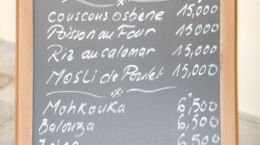 couscous osbène 15,000
Poisson au Four 15,000
Riz au calamar 15,000
Mosli de Poulet 15,000
Mohkouka 6,500
Balouza 6,500
6,500